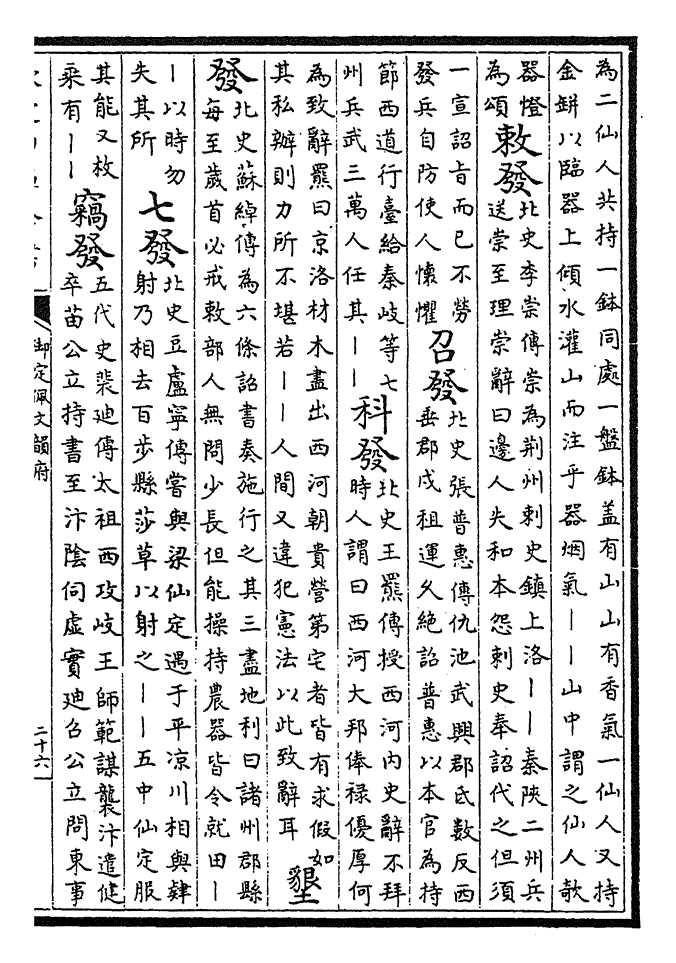 為二仙人共持一鉢同處一盤鉢盖有山山有香氣一仙人又持
金缾以臨器上傾水灌山而注乎器烟氣||山中謂之仙人欹
器燈
為頌
敕發
北史李崇傳崇為荆州刺史鎮上洛||秦陜二州兵
送崇至理崇辭曰邊人失和本怨刺史奉詔代之但須
一宣詔旨而已不勞
發兵自防使人懷懼
召發
北史張普惠傳仇池武興郡氐數反西
垂郡戍租運乆絶詔普惠以本官為持
節西道行臺給秦岐等七
州兵武三萬人任其||
科發
北史王羆傳授西河内史辭不拜
時人謂曰西河大邦俸禄優厚何
為致辭羆曰京洛材木盡出西河朝貴營第宅者皆有求假如
其私辦則力所不堪若||人間又違犯憲法以此致辭耳
墾
發
北史蘇綽傳為六條詔書奏施行之其三盡地利曰諸州郡縣
每至歲首必戒敕部人無問少長但能操持農器皆令就田|
|以時勿
失其所
七發
北史豆盧寧傳嘗與梁仙定遇于平凉川相與肄
射乃相去百步縣莎草以射之||五中仙定服
其能又枚
乘有||
竊發
五代史裴廸傳太祖西攻岐王師範謀襲汴遣健
卒苗公立持書至汴隂伺虚實廸召公立問東事
御定佩文韻府
二十六